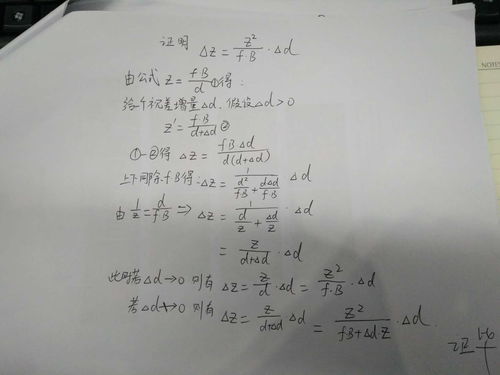 证明 Δz = z²/(f·B) · Δd
由公式 z = f·B/d ①得:
给个视差增量Δd, 假设Δd>0
z' = f·B/(d+Δd) ②
①-②得 Δz = fBΔd/(d(d+Δd))
上下同除fB得: Δz = 1/(d²/(f·B) + dΔd/(f·B)) Δd
由 1/z = d/(f·B) ⇒ Δz = 1/(d/z + Δd/z) · Δd
= z/(d+Δd) · Δd
此时若Δd→0 则有 Δz = z/d · Δd = z²/(f·B) · Δd
若Δd↛0 则有 Δz = z/(d+Δd) Δd = z²/(fB+Δdz) · Δd.
证
NOTES